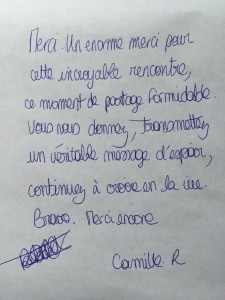 Merci. Un enorme merci pour
cette incroyable rencontre,
ce moment de partage formidable.
Vous nous donnez, transmettez
un véritable message d'espoir,
continuez à croire en la vie.
Bravo. Merci encore
Camille. R